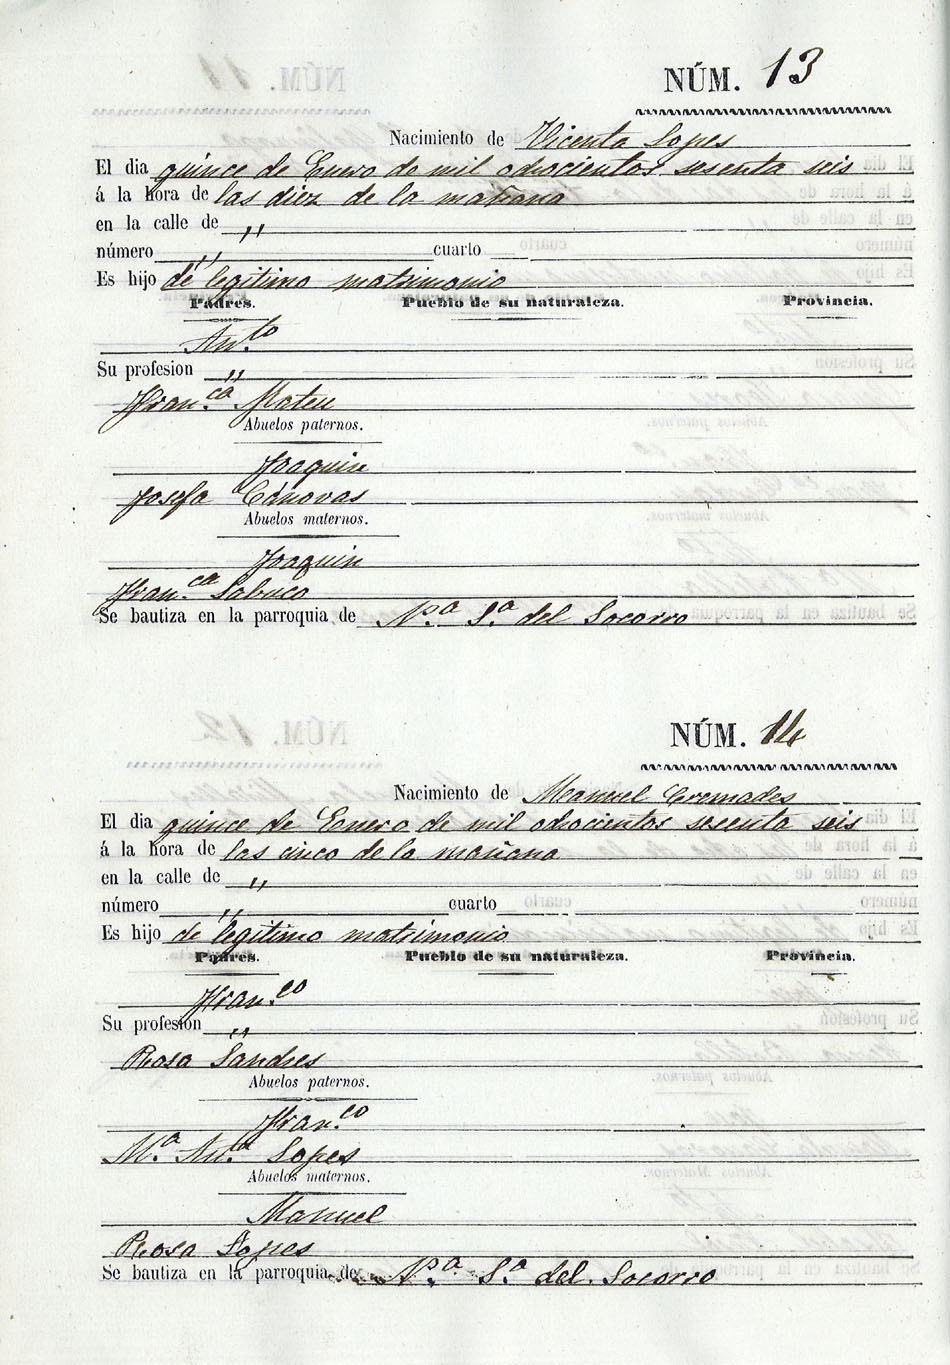 NÚM. 13
Nacimiento de Vicenta Lopes
El dia quince de Enero de mil odsocientos sesenta seis
á la hora de las diez de la mañana
en la calle de „
número „ cuarto
Es hijo de legitimo matrimonio
Padres. Pueblo de su naturaleza. Provincia.
Ant.to
Su profesion „
Fran.ca Mateu
Abuelos paternos.
Joaquin
Josefa Cánovas
Abuelos maternos.
Joaquin
Fran.ca Sabuco
Se bautiza en la parroquia de N.a S.a del Socorro
NÚM. 14
Nacimiento de Manuel Cremades
El dia quince de Enero de mil odsocientos sesenta seis
á la hora de las cinco de la mañana
en la calle de „
número „ cuarto
Es hijo de legitimo matrimonio
Padres. Pueblo de su naturaleza. Provincia.
Fran.co
Su profesion „
Rosa Landres
Abuelos paternos.
Fran.co
M.a Ant.a Lopes
Abuelos maternos.
Manuel
Rosa Lopes
Se bautiza en la parroquia de N.a S.a del Socorro